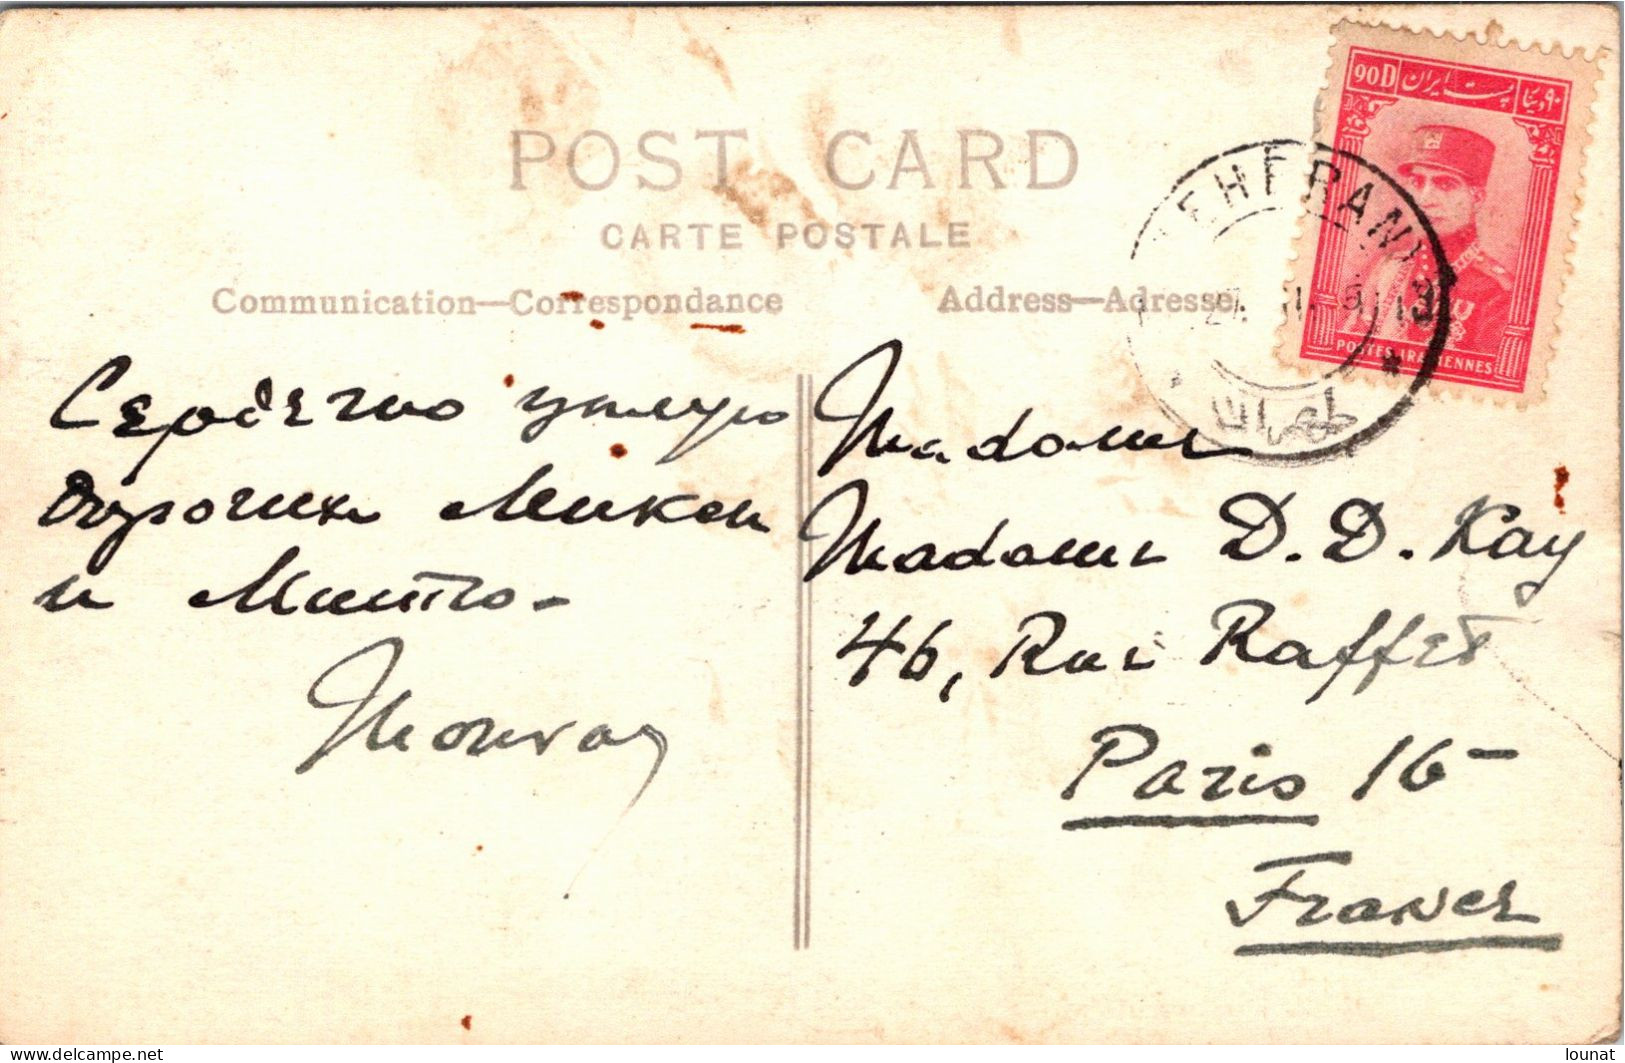 POST CARD
CARTE POSTALE
Communication—Correspondance
Address—Adresse
90D
پست ایران
۹۰ دینار
POSTES IRANIENNES
TEHERAN
طهران
Сердечно целую
дорогих
и
Madame
Madame D. D. Kay
46, Rue Raffet
Paris 16-
France
delcampe.net
lounat